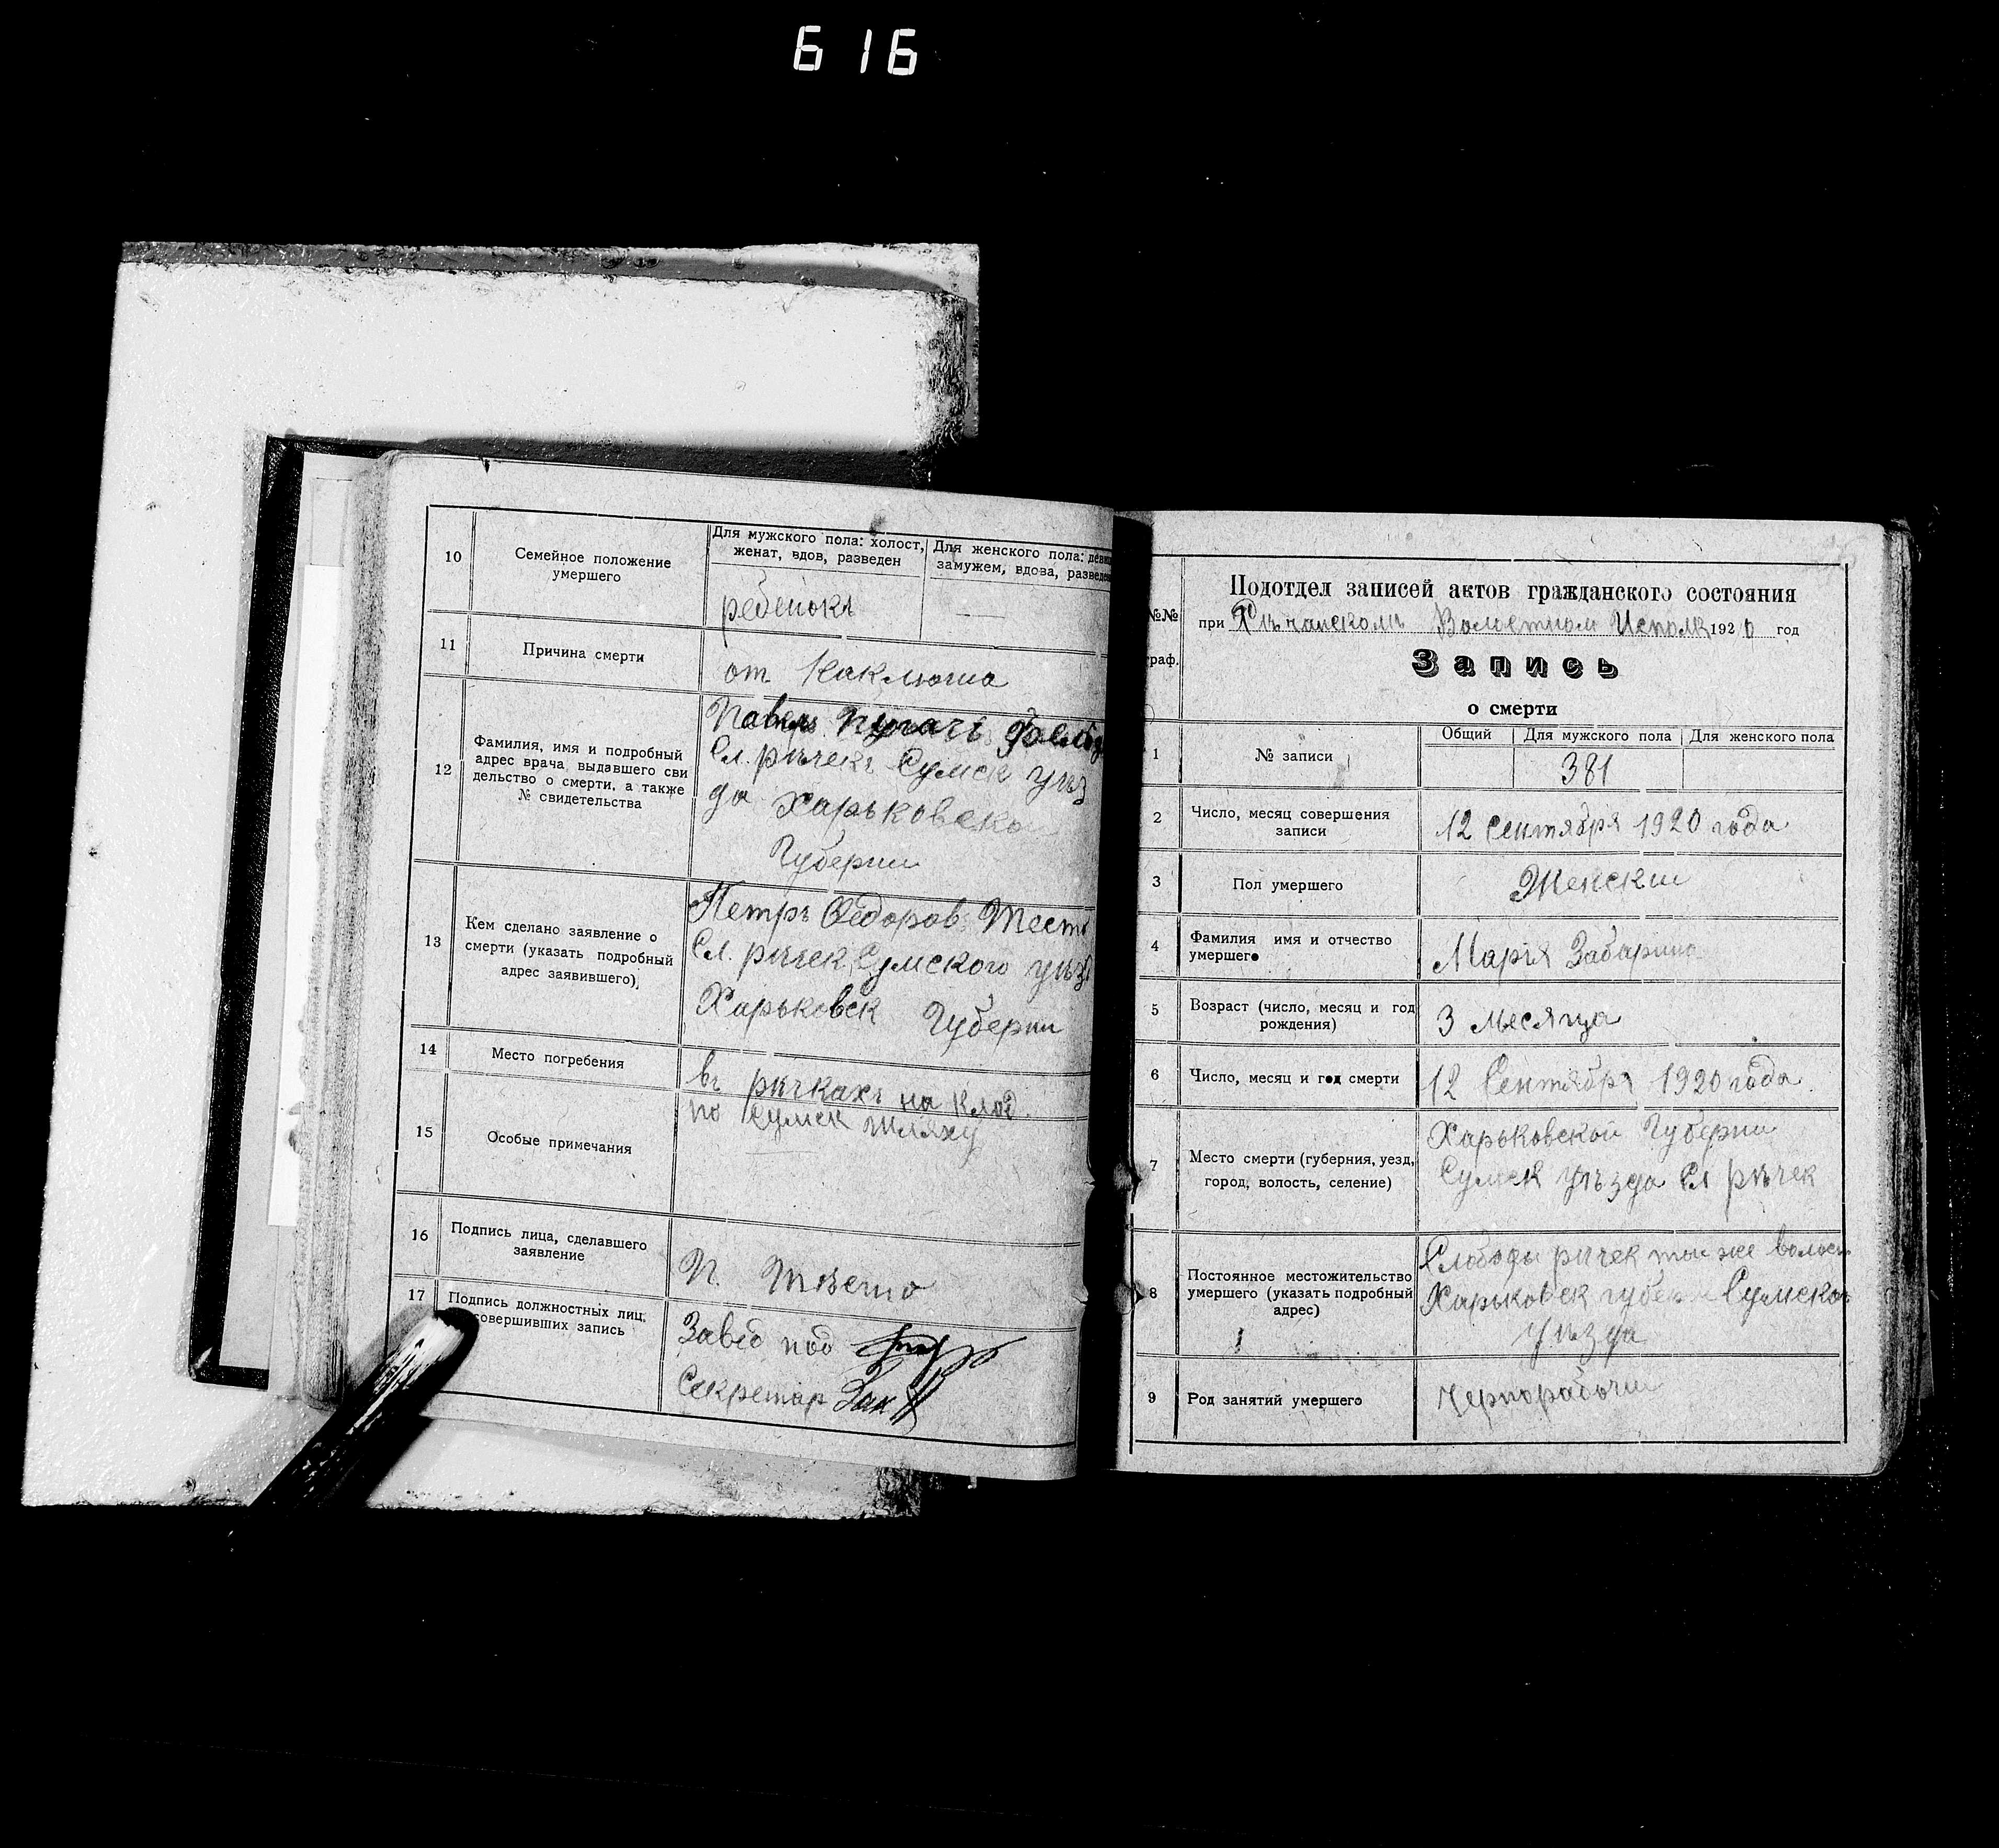 616
10
Семейное положение
умершего
Для мужского пола: холост,
женат, вдов, разведен
Для женского пола: девиц
замужем, вдова, разведе
ребенокъ
11
Причина смерти
от Каклюша
12
Фамилия, имя и подробный
адрес врача, выдавшего сви
дельство о смерти, а также
№ свидетельства
Павелъ Пугачъ
Сл. рѣчекъ Сумск уѣз
да Харьковской
Губернии
13
Кем сделано заявление о
смерти (указать подробный
адрес заявившего)
Петръ Федоров
Сл. рѣчек Сумского уѣзд
Харьковск Губерни
14
Место погребения
въ рѣчкахъ на клад
15
Особые примечания
по Сумск шляху
16
Подпись лица, сделавшего
заявление
П.
17
Подпись должностных лиц,
совершивших запись
Завѣд под
Секретар
№№
граф.
Подотдел записей актов гражданского состояния
при Рѣчанском Волостном Исполк 1920 год
Запись
о смерти
1
№ записи
Общий
Для мужского пола
Для женского пола
381
2
Число, месяц совершения
записи
12 Сентября 1920 года
3
Пол умершего
Женский
4
Фамилия имя и отчество
умершего
Марія Забарина
5
Возраст (число, месяц и год
рождения)
3 месяца
6
Число, месяц и год смерти
12 Сентября 1920 года.
7
Место смерти (губерния, уезд,
город, волость, селение)
Харьковской Губерни
Сумск уѣзда Сл рѣчек
8
Постоянное местожительство
умершего (указать подробный
адрес)
Слободы рѣчек той же волост
Харьковск губерн Сумского
уѣзда
9
Род занятий умершего
Чернорабочий